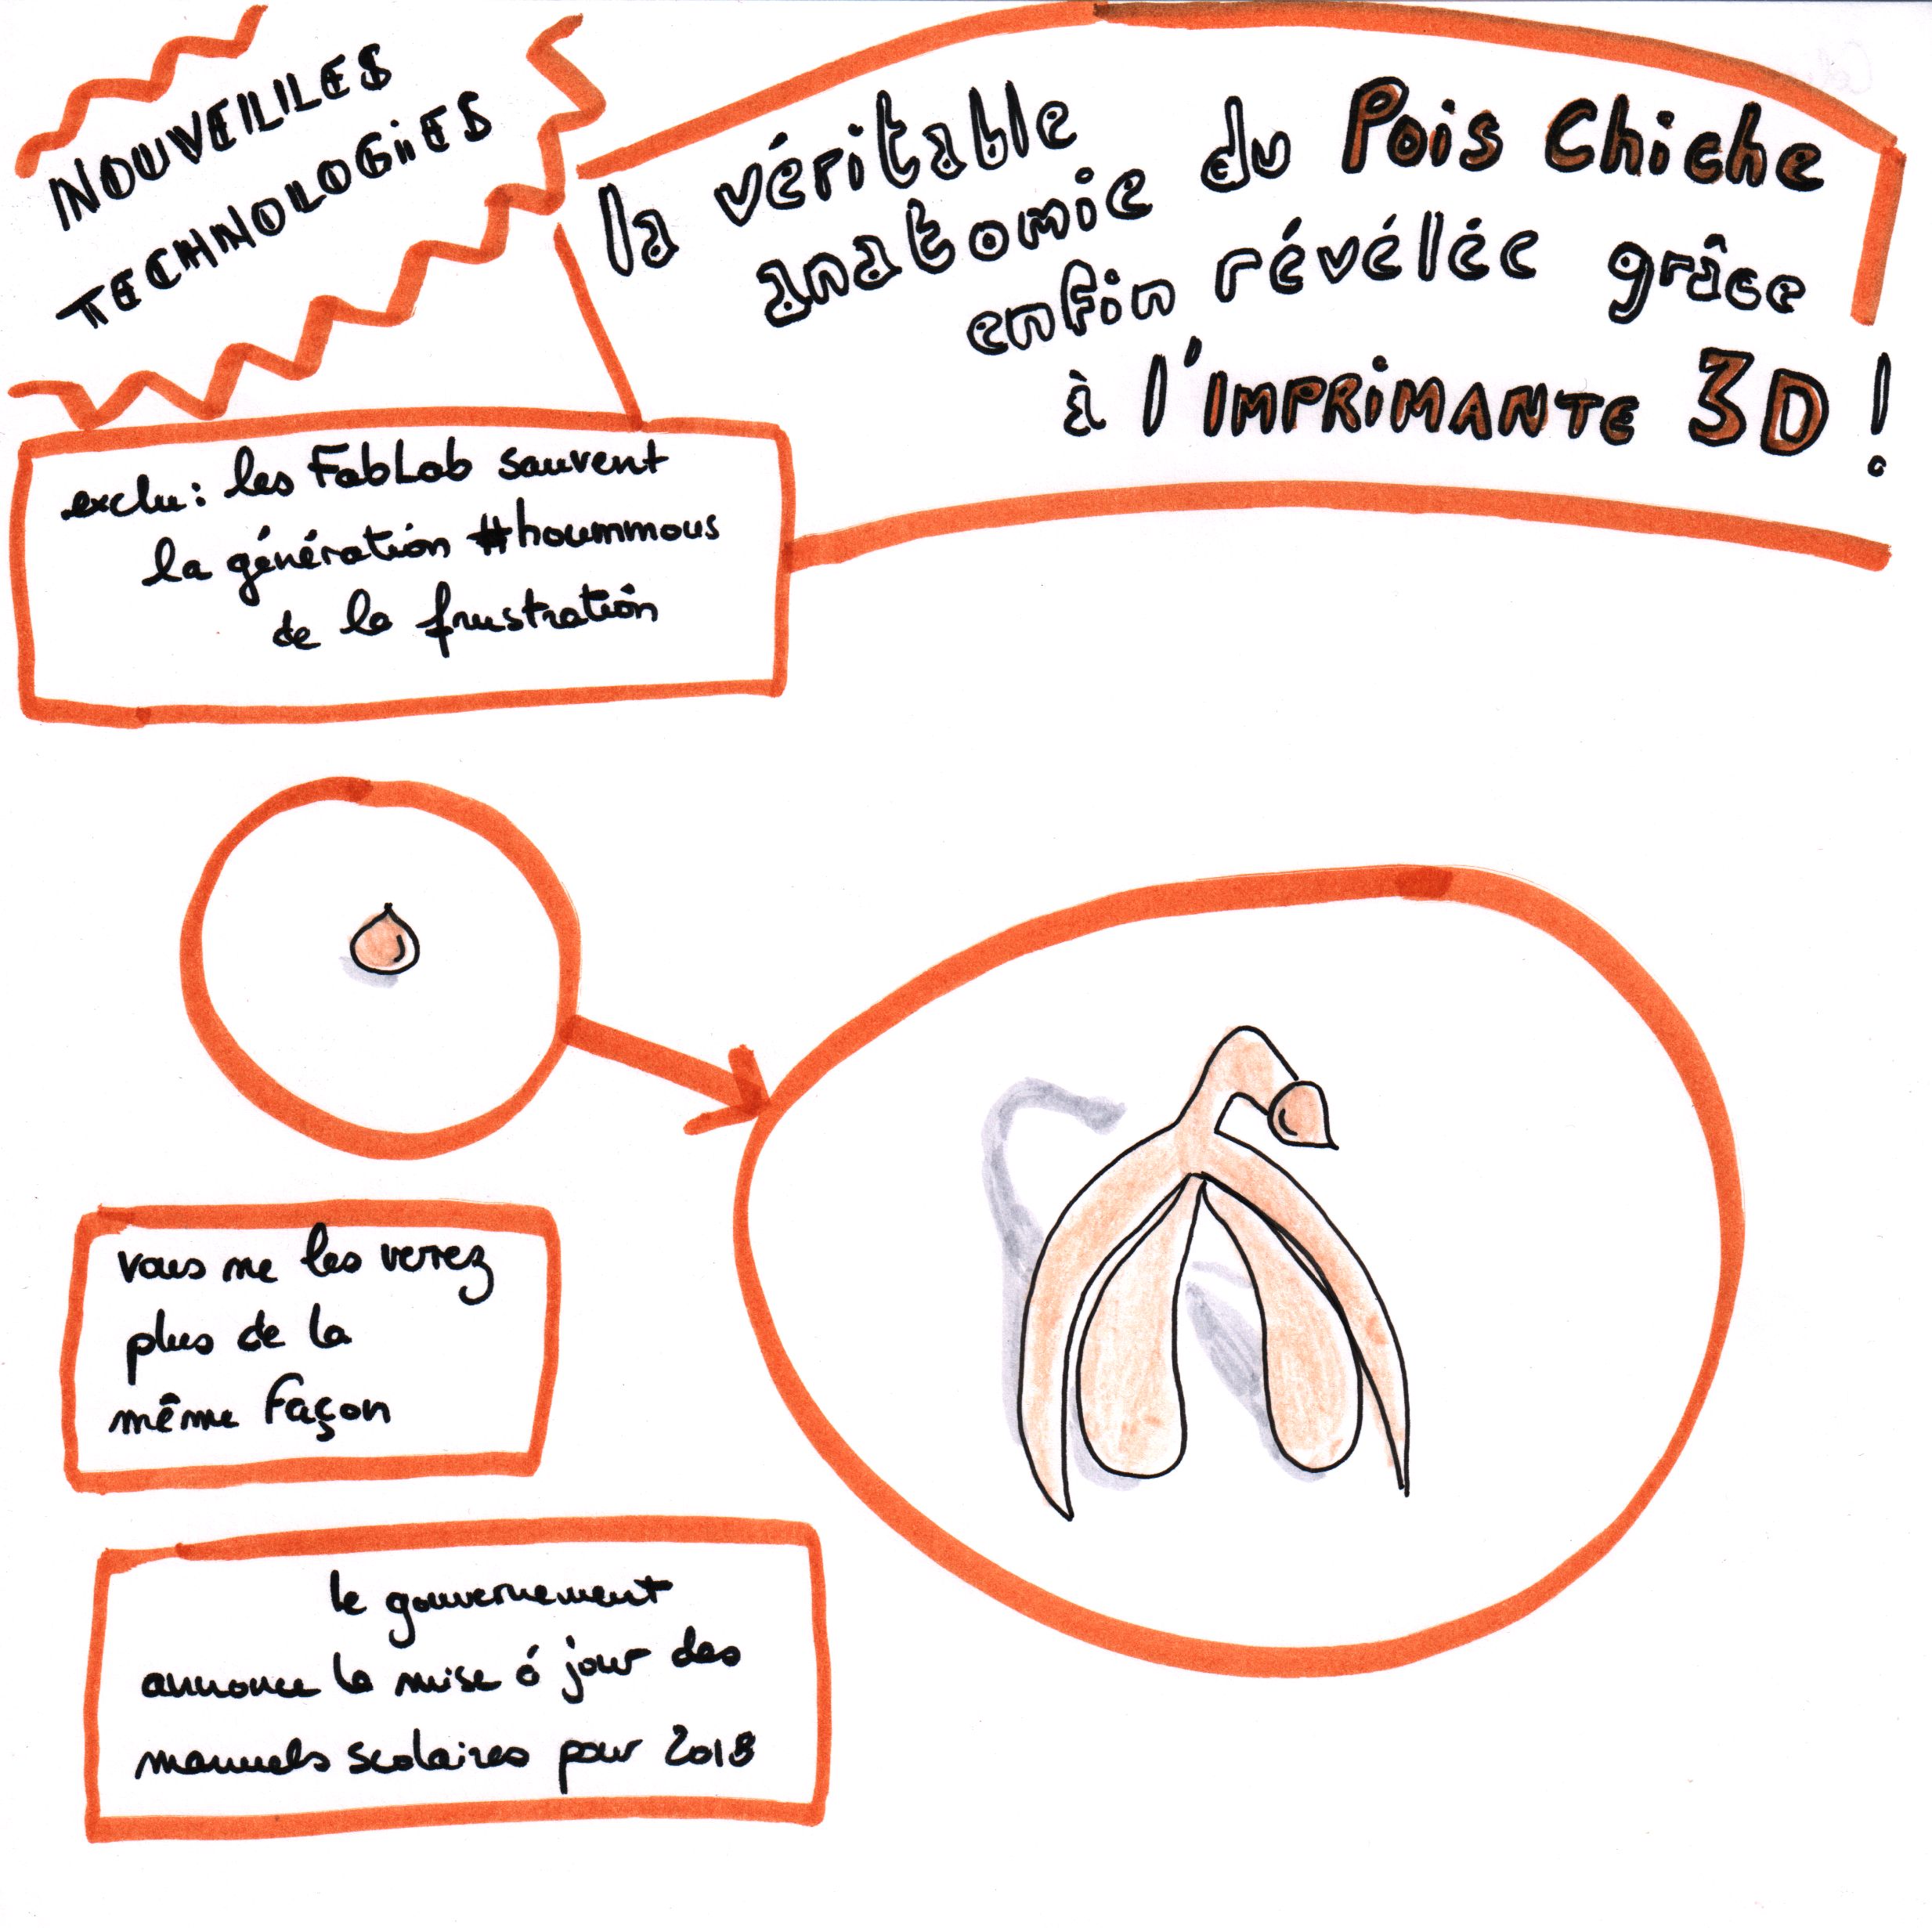 NOUVELLES
TECHNOLOGIES
la véritable
anatomie du Pois Chiche
enfin révélée grâce
à l'IMPRIMANTE 3D !
exclu: les FabLab sauvent
la génération #hoummous
de la frustration
vous ne les verrez
plus de la
même façon
le gouvernement
annonce la mise à jour des
manuels scolaires pour 2018